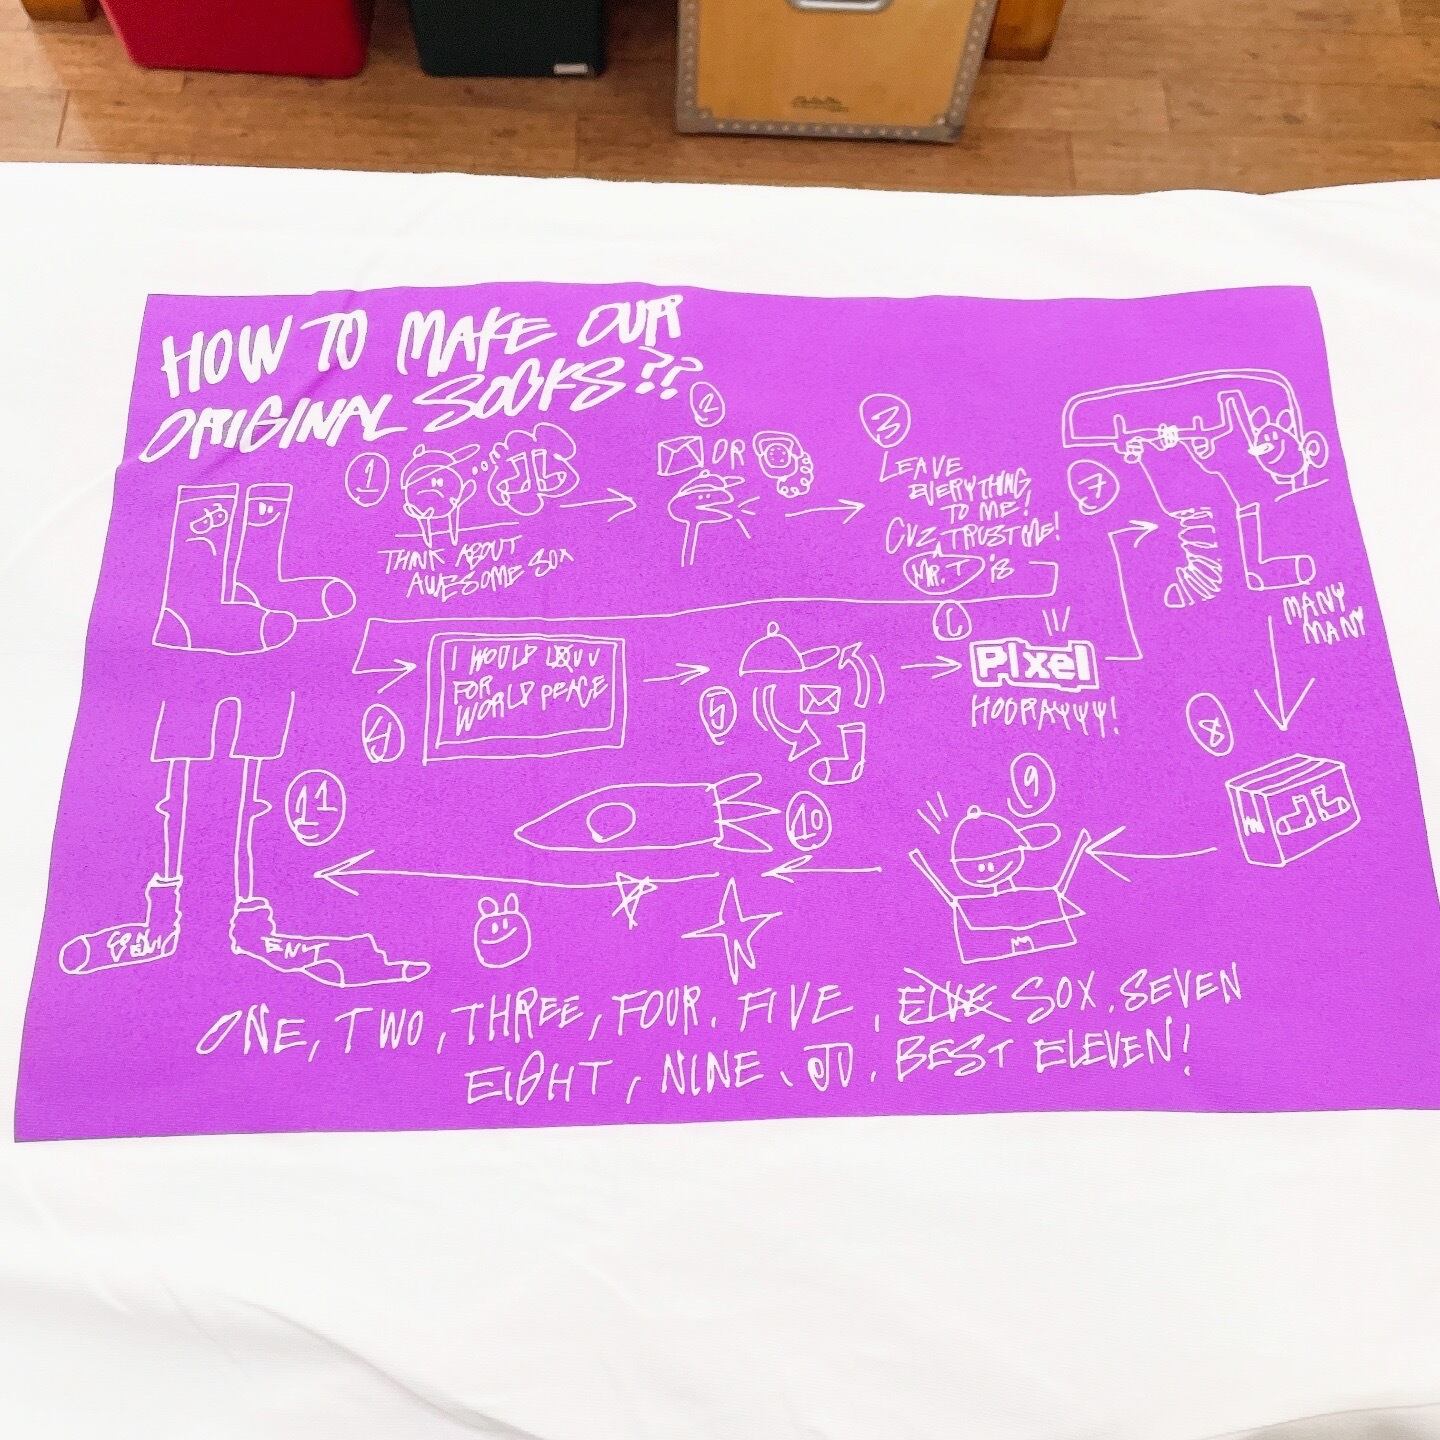 HOW TO MAKE OUR
ORIGINAL SOCKS??
1
THINK ABOUT
AWESOME SOX
2
OR
3
LEAVE
EVERYTHING
TO ME!
CUZ, TRUST ME!
MR.T is
4
I WOULD
FOR
WORLD PEACE
5
6
Pixel
HOORAYYYY!
7
MANY
MANY
8
9
10
11
ENT
ONE, TWO, THREE, FOUR. FIVE, FIVE SOX. SEVEN
EIGHT, NINE, JO, BEST ELEVEN!